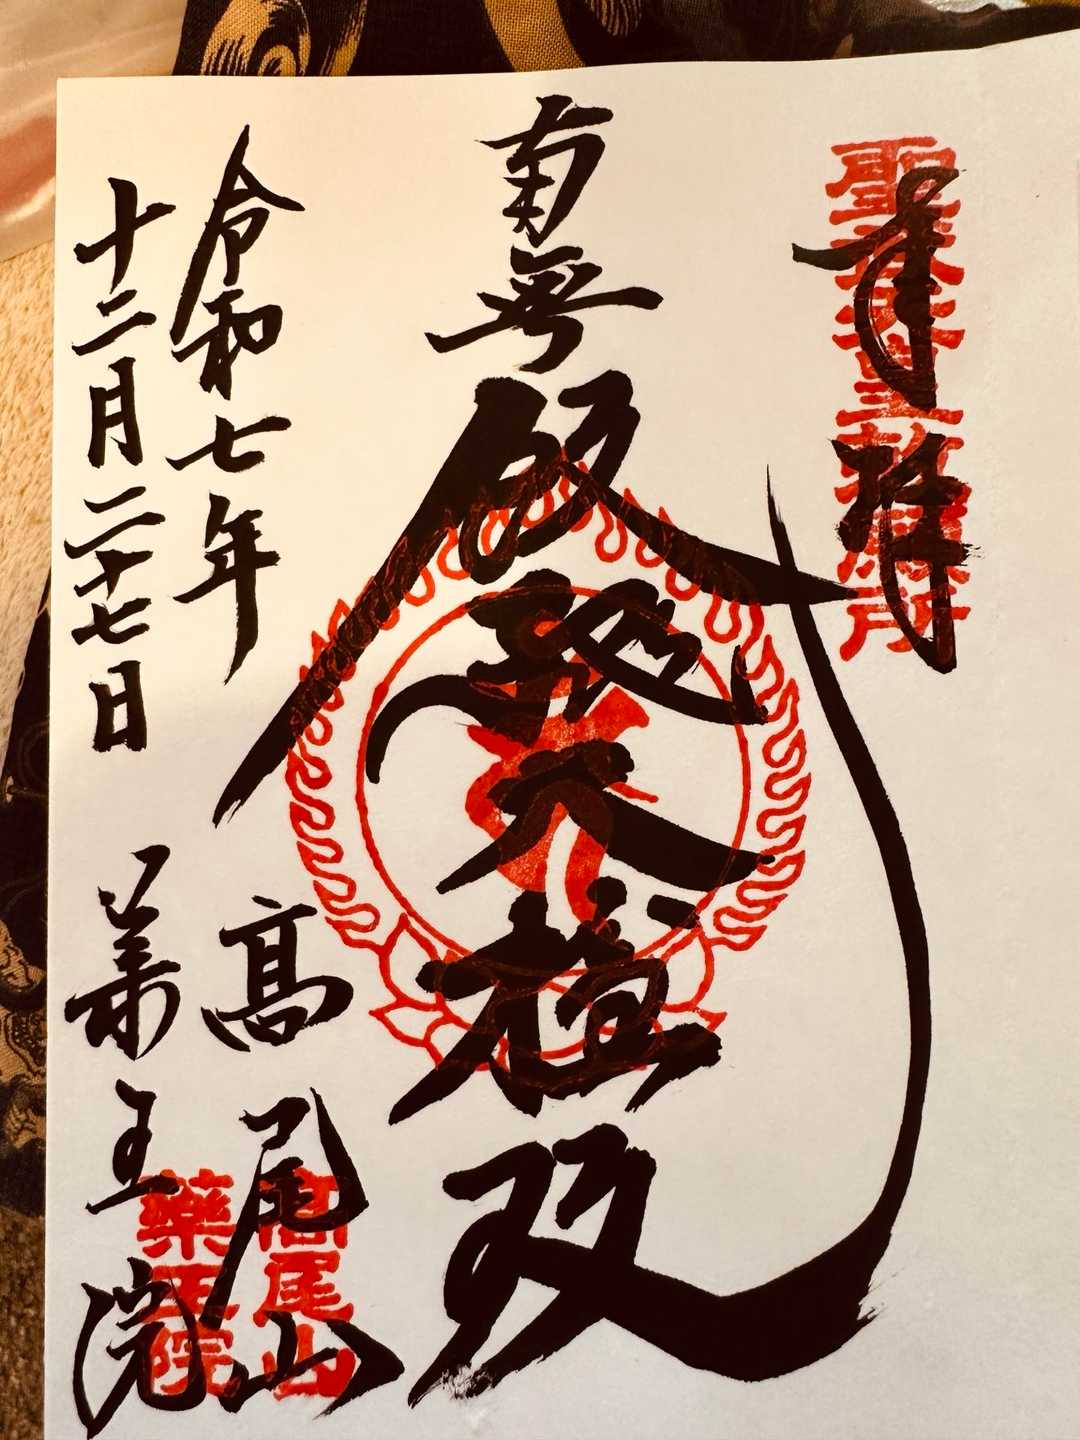 奉拝
聖武天皇勅願所
南無飯縄大権現
令和七年
十二月二十七日
高尾山
薬王院
高尾山
藥王院